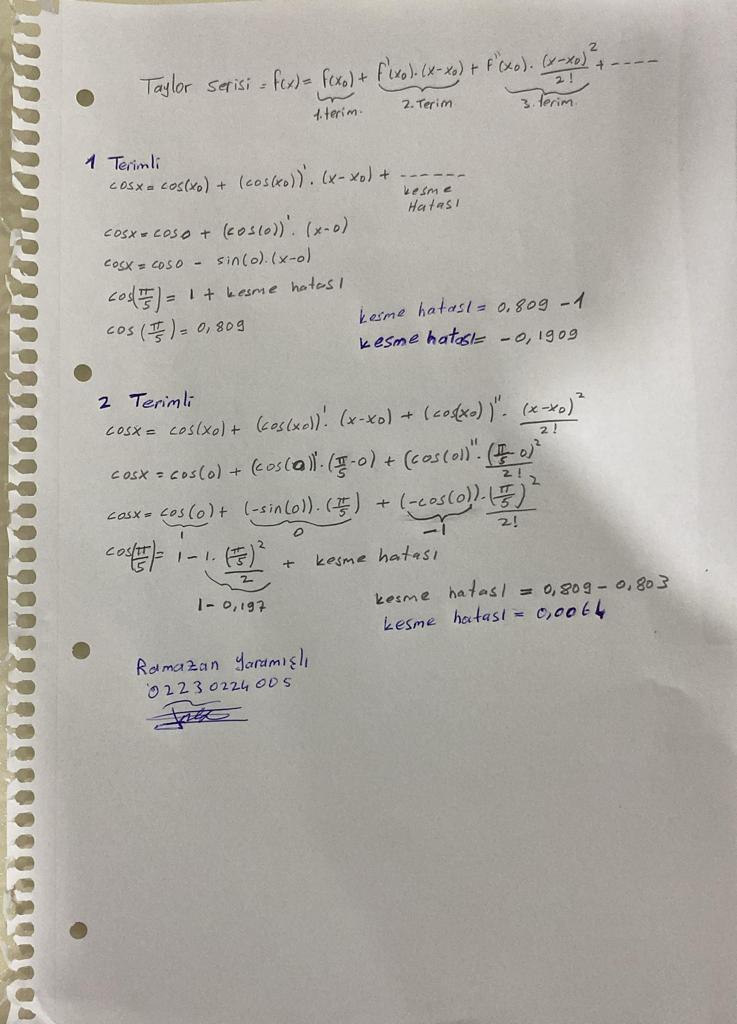 Taylor serisi = f(x) = f(x₀) + f'(x₀).(x-x₀) + f''(x₀). (x-x₀)²/2! + ----
1.terim. 2.Terim 3.terim.
1 Terimli
cosx = cos(x₀) + (cos(x₀))'. (x-x₀) + ------
kesme
Hatası
cosx = cos0 + (cos(0))'. (x-0)
cosx = cos0 - sin(0).(x-0)
cos(π/5) = 1 + kesme hatası
kesme hatası = 0,809 - 1
cos(π/5) = 0,809
kesme hatası = -0,1909
2 Terimli
cosx = cos(x₀) + (cos(x₀))'. (x-x₀) + (cos(x₀))''. (x-x₀)²/2!
cosx = cos(0) + (cos(0))'.(π/5-0) + (cos(0))''.(π/5-0)²/2!
cosx = cos(0) + (-sin(0)).(π/5) + (-cos(0)).(π/5)²/2!
1 0 -1
cos(π/5) = 1-1. (π/5)²/2 + kesme hatası
1-0,197
kesme hatası = 0,809 - 0,803
kesme hatası = 0,0064
Ramazan Yaramışlı
02230224005